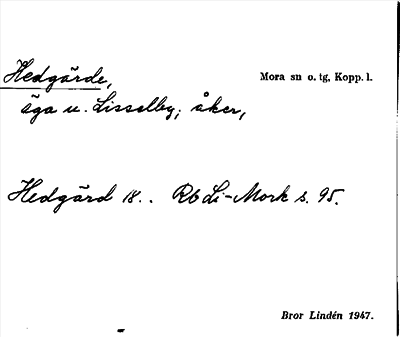 Hedgärde, Mora sn o. tg, Kopp. l.
äga u. Lisselby; åker,
Hedgård 18.. Rb Li-Mork s. 95.
Bror Lindén 1947.